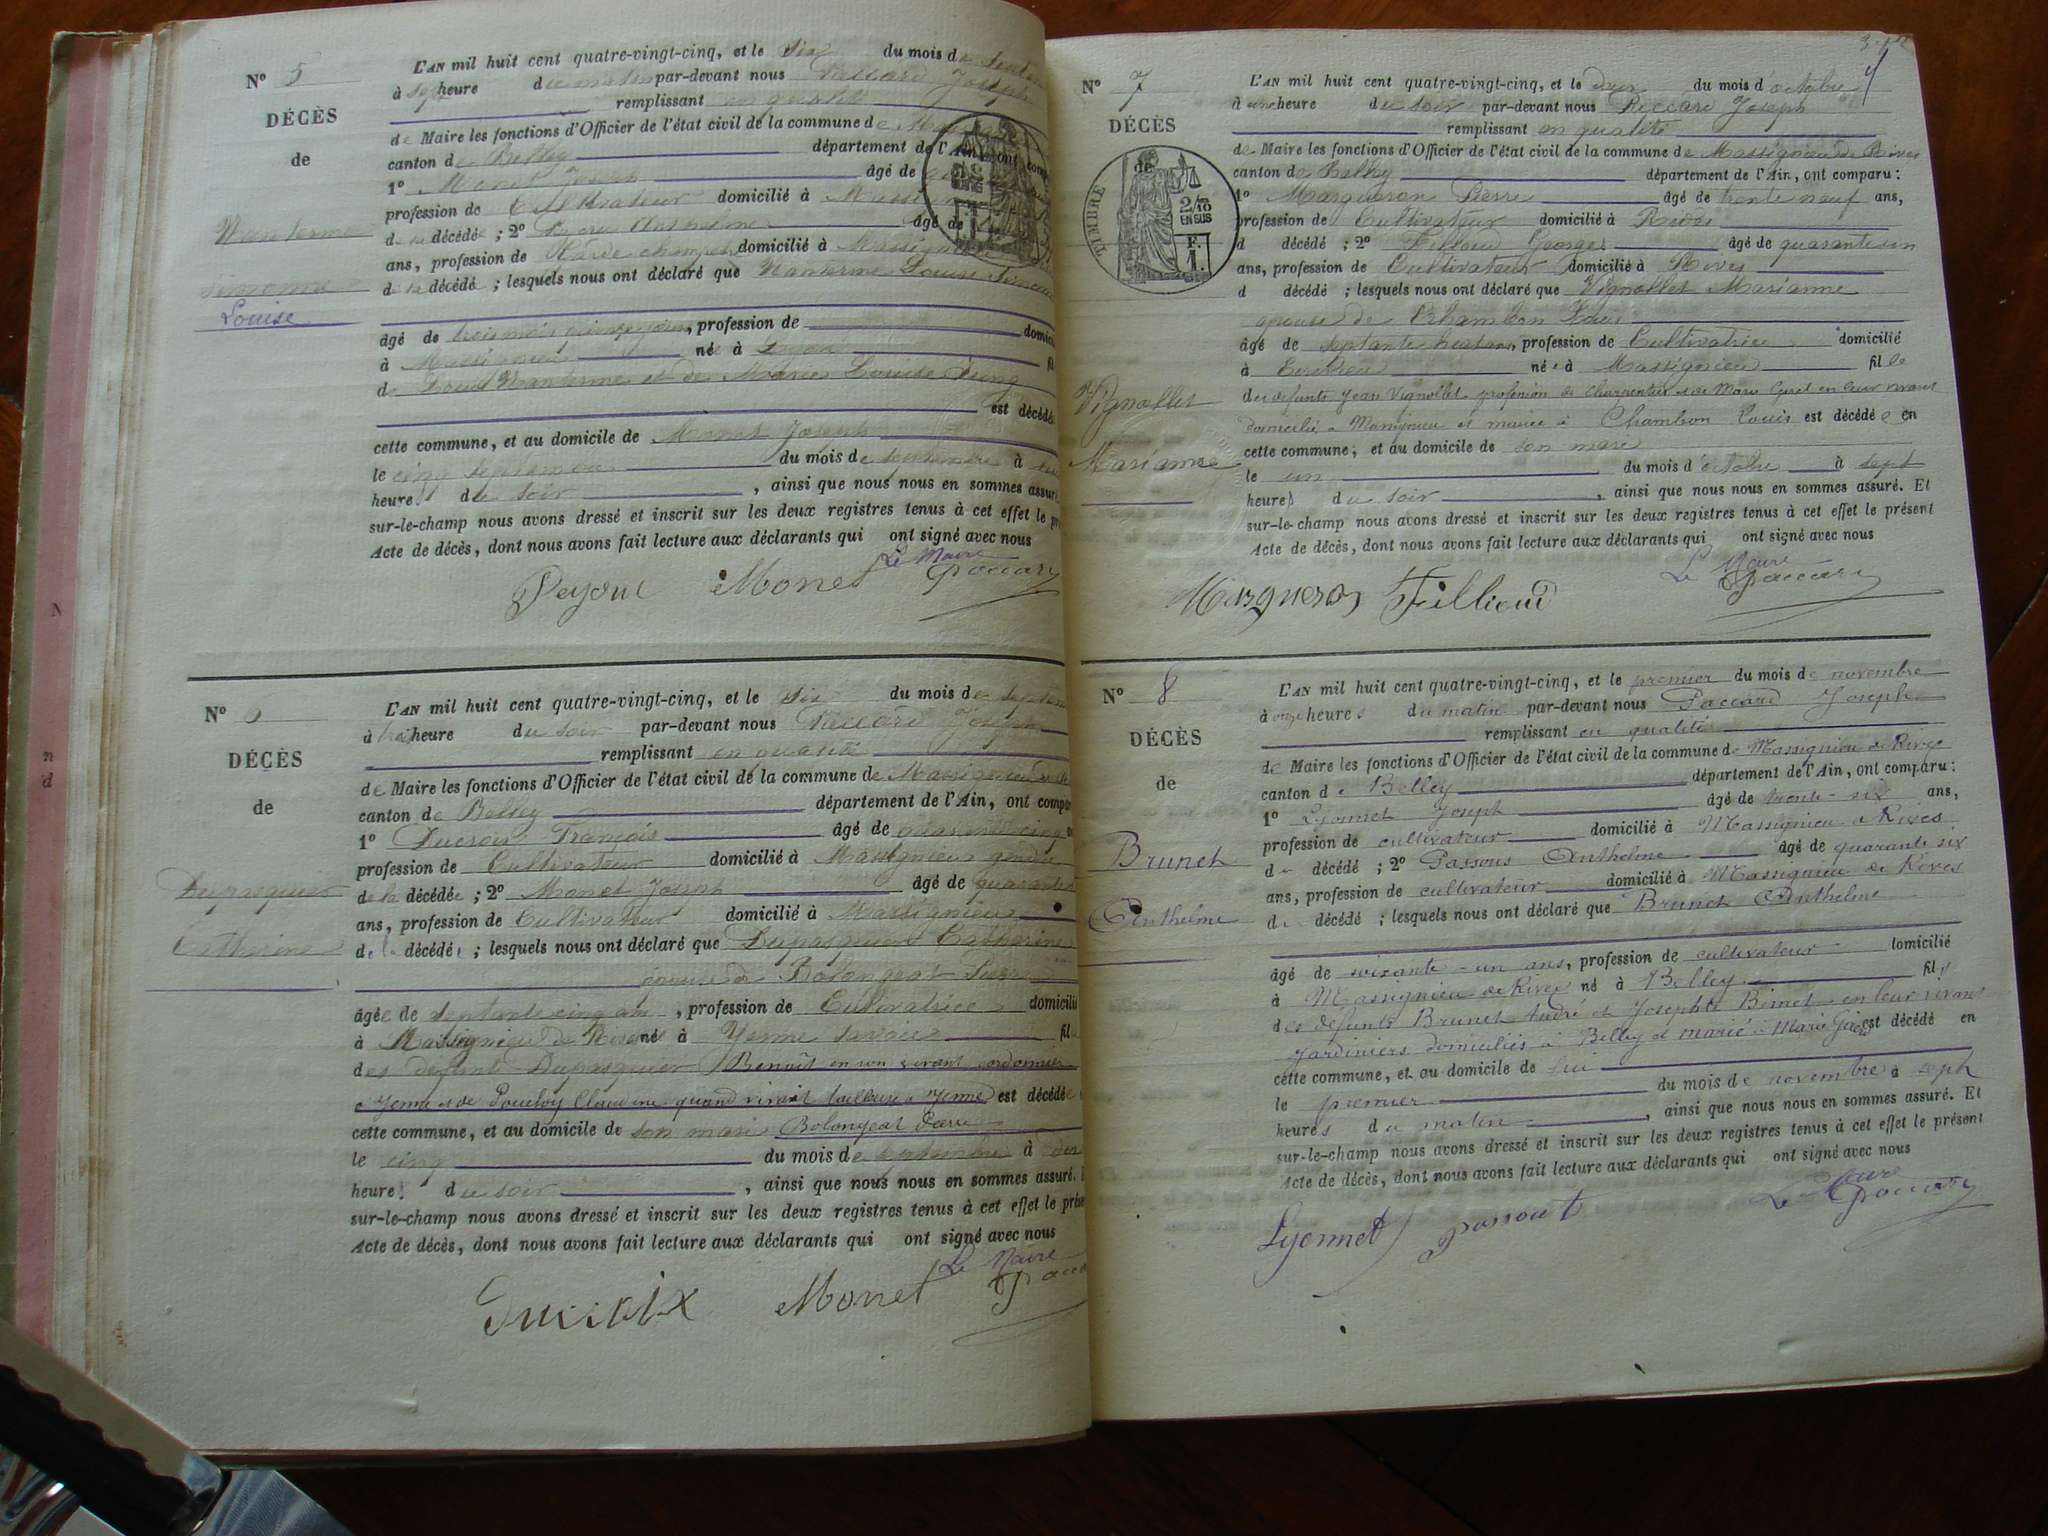 N° 5
DÉCÈS
de
Nanterme
Simonne
Louise
L'AN mil huit cent quatre-vingt-cinq, et le Six du mois de
à sept heure du matin par-devant nous Paccard Joseph
remplissant en qualité
de Maire les fonctions d'Officier de l'état civil de la commune de
canton de Belley département de l'Ain, ont
1° Monet Joseph âgé de
profession de Cultivateur domicilié à
de la décédé ; 2° Anthelme âgé de
ans, profession de Garde champêtre domicilié à Massignieu
de la décédée ; lesquels nous ont déclaré que Nanterme Louise
âgé de trois mois quinze jours, profession de
à Massignieu né à Lyon
de Louis Nanterme et de Marie Louise
est décédé
cette commune, et au domicile de Monet Joseph
le cinq septembre du mois de septembre à
heure du soir , ainsi que nous nous en sommes
sur-le-champ nous avons dressé et inscrit sur les deux registres tenus à cet effet le
Acte de décès, dont nous avons fait lecture aux déclarants qui ont signé avec nous
Le Maire
Monet Paccard
N° 6
DÉCÈS
de
Dupasquier
Catherine
L'AN mil huit cent quatre-vingt-cinq, et le Six du mois de
à heure du soir par-devant nous Paccard Joseph
remplissant en qualité
de Maire les fonctions d'Officier de l'état civil de la commune de Massignieu de
canton de Belley département de l'Ain, ont
1° Ducroix François âgé de quarante cinq
profession de Cultivateur domicilié à Massignieu gendre
de la décédée ; 2° Monet Joseph âgé de quarante
ans, profession de Cultivateur domicilié à Massignieu
de la décédée ; lesquels nous ont déclaré que Dupasquier Catherine
épouse de Bolongeat Pierre
âgée de septante cinq ans, profession de Cultivatrice domicilié
à Massignieu de Rives né à Yenne Savoie fil
des defunts Dupasquier Benoît en son vivant cordonnier
à Yenne et de Claudine quand vivait tailleuse à Yenne est décédée
cette commune, et au domicile de son mari Bolongeat Pierre
le cinq du mois de septembre à
heure du soir , ainsi que nous nous en sommes assuré.
sur-le-champ nous avons dressé et inscrit sur les deux registres tenus à cet effet le
Acte de décès, dont nous avons fait lecture aux déclarants qui ont signé avec nous
Le Maire
Ducroix Monet
N° 7
DÉCÈS
de
TIMBRE
2/10
EN SUS
F.
1.
Vignollet
Marianne
L'AN mil huit cent quatre-vingt-cinq, et le deux du mois d'octobre
à une heure du soir par-devant nous Paccard Joseph
remplissant en qualité
de Maire les fonctions d'Officier de l'état civil de la commune de Massignieu de Rives
canton de Belley département de l'Ain, ont comparu :
1° Margueron Pierre âgé de trente neuf ans,
profession de Cultivateur domicilié à Rives
d décédé ; 2° Fillioud Georges âgé de quarante un
ans, profession de Cultivateur domicilié à Rives
d décédé ; lesquels nous ont déclaré que Vignollet Marianne
épouse de Chambon Louis
âgé de septante huit ans, profession de Cultivatrice domicilié
à née à Massignieu fille
des defunts Jean Vignollet profession de Charpentier et de Marie en leur vivant
domicilié à Massignieu et mariée à Chambon Louis est décédée en
cette commune, et au domicile de son mari
le un du mois d'octobre à sept
heures du soir , ainsi que nous nous en sommes assuré. Et
sur-le-champ nous avons dressé et inscrit sur les deux registres tenus à cet effet le présent
Acte de décès, dont nous avons fait lecture aux déclarants qui ont signé avec nous
Le Maire
Margueron Fillioud Paccard
N° 8
DÉCÈS
de
Brunet
Anthelme
L'AN mil huit cent quatre-vingt-cinq, et le premier du mois de novembre
à onze heures du matin par-devant nous Paccard Joseph
remplissant en qualité
de Maire les fonctions d'Officier de l'état civil de la commune de Massignieu de Rives
canton de Belley département de l'Ain, ont comparu :
1° Lyonnet Joseph âgé de trente-six ans,
profession de cultivateur domicilié à Massignieu de Rives
du décédé ; 2° Anthelme âgé de quarante six
ans, profession de cultivateur domicilié à Massignieu de Rives
du décédé ; lesquels nous ont déclaré que Brunet Anthelme
âgé de soixante-un ans, profession de cultivateur domicilié
à Massignieu de Rives né à Belley fils
des defunts Brunet André et Josephte Binet en leur vivant
jardiniers domiciliés à Belley et marié à Marie est décédé en
cette commune, et au domicile de lui
le premier du mois de novembre à sept
heures du matin , ainsi que nous nous en sommes assuré. Et
sur-le-champ nous avons dressé et inscrit sur les deux registres tenus à cet effet le présent
Acte de décès, dont nous avons fait lecture aux déclarants qui ont signé avec nous
Le Maire
Lyonnet Paccard